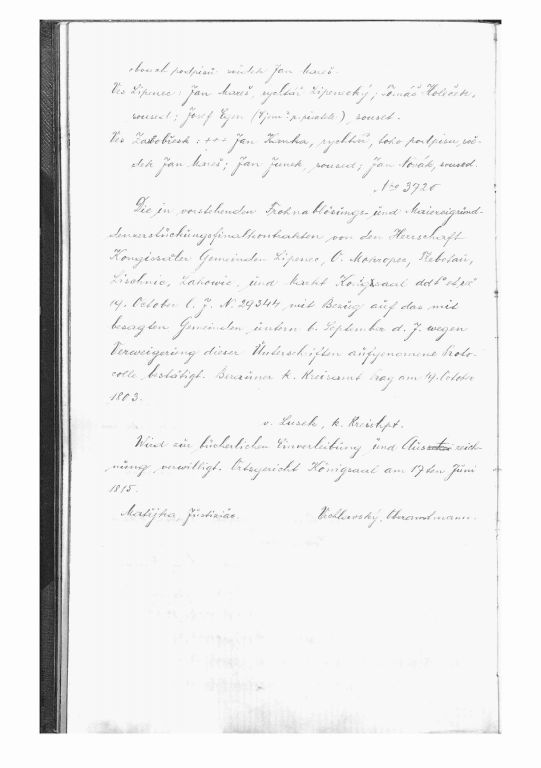 obouch podpisů svědek Jan Mareš.
Ves Lipenec: Jan Mareš, rychtář Lipenecký; Tomáš Holeček,
soused; Josef Eyen, soused.
Ves Zabobřesk: +++ Jan Krnka, rychtář, toho podpisu svě-
dek Jan Mareš; Jan Junek, soused; Jan Novák, soused.
Nro 3720
Die in vorstehenden Frohnablösungs- und Maiereigründ-
denverstückungsfinalkontrakten von den Herrschaft
Königssaler Gemeinden Lipenec, O. Mokropec, Řebotau,
Lischnic, Zahowic, und Markt Königsaal ddto
19. October l. J. N. 29344 mit Bezug auf das mit
besagten Gemeinden untern 6. September d. J. wegen
Verweigerung dieser Unterschriften aufgenomene Proto-
colle bestätigt. Berauner k. Kreisamt Prag am 19. Octobr
1803.
v. Lusek, k. Kreishpt.
Wird zur bücherlichen Einverleibung und Aus zeich-
nung verwilligt. Ortsgericht Königsaal am 17ten Juni
1815.
Matijka, Justiziär. Oberamtmann.